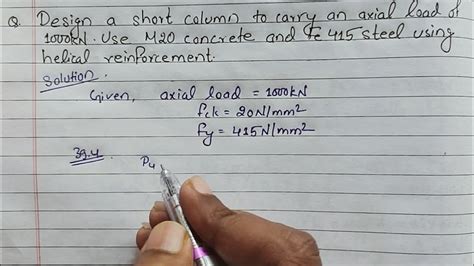 Q. Design a short column to carry an axial load of
1000kN. Use M20 concrete and Fe 415 steel using
helical reinforcement.
Solution.
Given, axial load = 1000kN
fck = 20N/mm²
fy = 415N/mm²
39.4 Pu